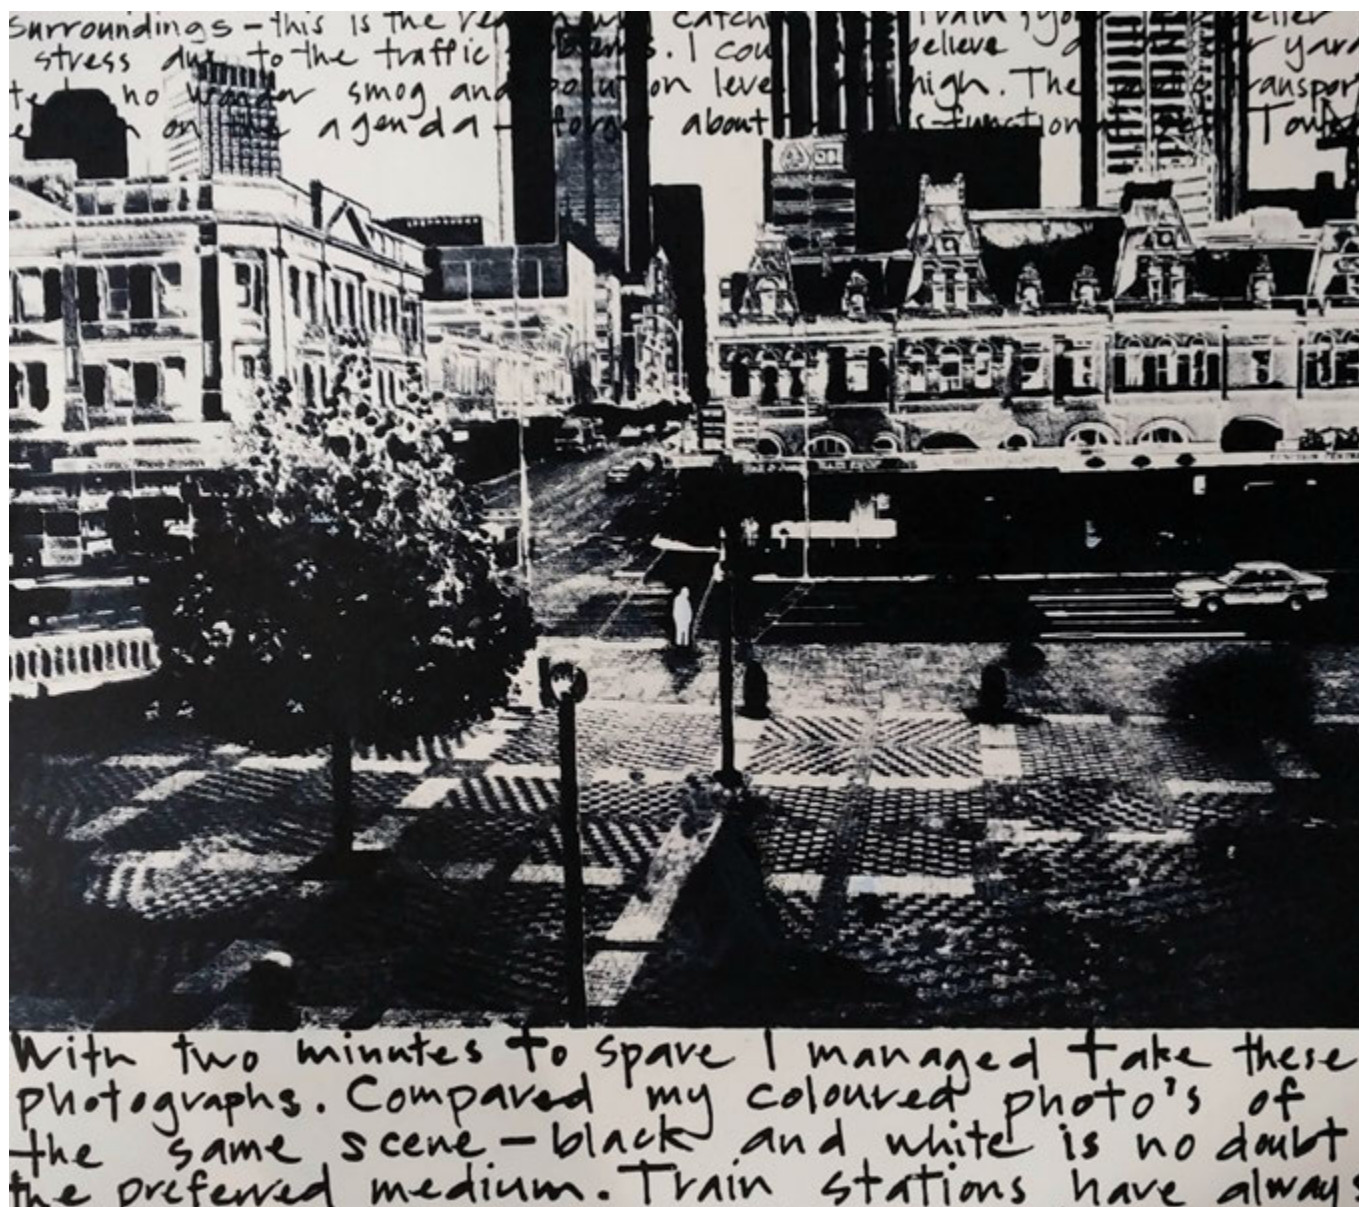 surroundings – this is the catch train,
stress due to the traffic . I believe yard
no wonder smog and pollution high. The transport
on the agenda – forget about function
With two minutes to spare I managed take these
photographs. Compared my coloured photo's of
the same scene – black and white is no doubt
the preferred medium. Train stations have always